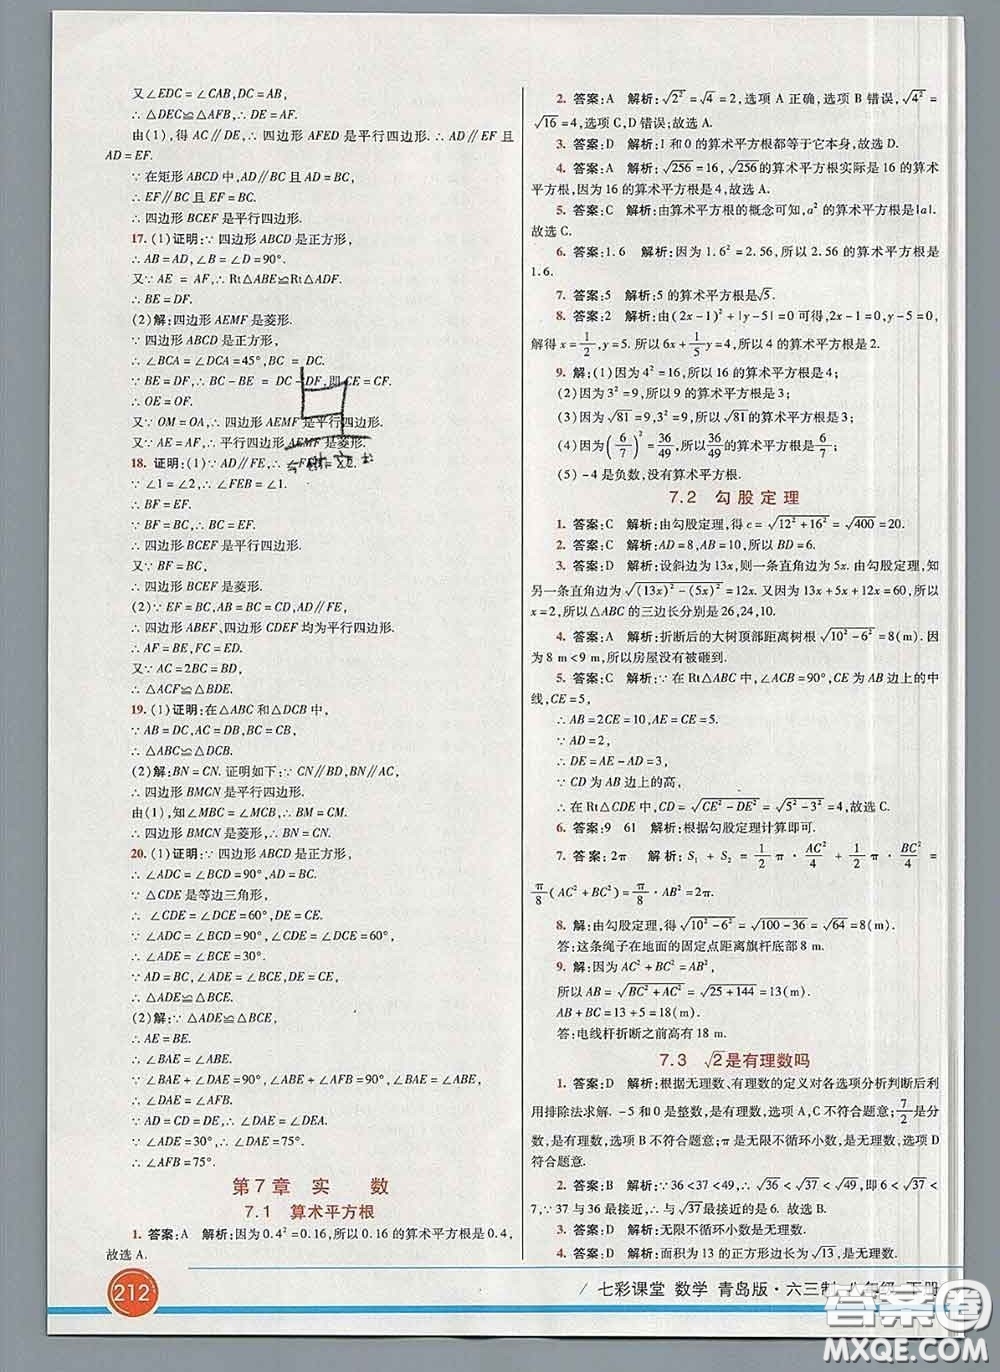 又∠EDC=∠CAB,DC=AB,
∴△DEC≌△AFB,∴DE=AF.
由(1),得 AC∥DE,∴四边形 AFED 是平行四边形.∴AD∥EF 且
AD=EF.
∵在矩形 ABCD 中,AD∥BC 且 AD=BC,
∴EF∥BC 且 EF=BC.
∴四边形 BCEF 是平行四边形.
17. (1)证明:∵四边形 ABCD 是正方形,
∴AB=AD,∠B=∠D=90°.
又∵AE=AF,∴Rt△ABE≌Rt△ADF.
∴BE=DF.
(2)解:四边形 AEMF 是菱形.
∵四边形 ABCD 是正方形,
∴∠BCA=∠DCA=45°,BC=DC.
∵BE=DF,∴BC-BE=DC-DF,即 CE=CF.
∴OE=OF.
又∵OM=OA,∴四边形 AEMF 是平行四边形.
又∵AE=AF,∴平行四边形 AEMF 是菱形.
18. 证明:(1)∵AD∥FE,∴∠FEB=∠2.
∵∠1=∠2,∴∠FEB=∠1.
∴BF=EF.
∵BF=BC,∴BC=EF.
∴四边形 BCEF 是平行四边形.
又∵BF=BC,
∴四边形 BCEF 是菱形.
(2)∵EF=BC,AB=BC=CD,AD∥EF,
∴四边形 ABEF、四边形 CDEF 均为平行四边形.
∴AF=BE,FC=ED.
又∵AC=2BC=BD,
∴△ACF≌△BDE.
19. (1)证明:在△ABC 和△DCB 中,
∵AB=DC,AC=DB,BC=CB,
∴△ABC≌△DCB.
(2)解:BN=CN.证明如下:∵CN∥BD,BN∥AC,
∴四边形 BMCN 是平行四边形.
由(1),知∠MBC=∠MCB,∴BM=CM.
∴四边形 BMCN 是菱形,∴BN=CN.
20. (1)证明:∵四边形 ABCD 是正方形,
∴∠ADC=∠BCD=90°,AD=BC.
∵△CDE 是等边三角形,
∴∠CDE=∠DCE=60°,DE=CE.
∵∠ADC=∠BCD=90°,∠CDE=∠DCE=60°,
∴∠ADE=∠BCE=30°.
∵AD=BC,∠ADE=∠BCE,DE=CE,
∴△ADE≌△BCE.
(2)解:∵△ADE≌△BCE,
∴AE=BE.
∴∠BAE=∠ABE.
∵∠BAE+∠DAE=90°,∠ABE+∠AFB=90°,
∴∠DAE=∠AFB.
∵AD=CD=DE,∴∠DAE=∠DEA.
∵∠ADE=30°,∴∠DAE=75°.
∴∠AFB=75°.
第7章 实 数
7.1 算术平方根
1. 答案:A 解析:因为0.4²=0.16,所以0.16的算术平方根是0.4,
故选 A.
2. 答案:A 解析:√2²=√4=2,选项 A 正确,选项 B 错误,√4²=
√16=4,选项 C,D 错误;故选 A.
3. 答案:D 解析:1和0的算术平方根都等于它本身,故选 D.
4. 答案:A 解析:√256=16,√256的算术平方根实际是16的算术
平方根,因为16的算术平方根是4,故选 A.
5. 答案:C 解析:由算术平方根的概念可知,a²的算术平方根是|a|.
故选 C.
6. 答案:1.6 解析:因为1.6²=2.56,所以2.56的算术平方根是
1.6.
7. 答案:5 解析:5的算术平方根是√5.
8. 答案:2 解析:由(2x-1)²+|y-5|=0可得,2x-1=0,y-5=0,
解得 x=1/2,y=5.所以6x+1/5y=4,所以4的算术平方根是2.
9. 解:(1)因为4²=16,所以16的算术平方根是4;
(2)因为3²=9,所以9的算术平方根是3;
(3)因为√81=9,3²=9,所以√81的算术平方根是3;
(4)因为(6/7)²=36/49,所以36/49的算术平方根是6/7;
(5)-4是负数,没有算术平方根.
7.2 勾股定理
1. 答案:C 解析:由勾股定理,得 c=√(12²+16²)=√400=20.
2. 答案:C 解析:AD=8,AB=10,所以 BD=6.
3. 答案:D 解析:设斜边为13x,则一条直角边为5x.由勾股定理,知
另一条直角边为√((13x)²-(5x)²)=12x.又因为13x+5x+12x=60,所以
x=2,所以△ABC 的三边长分别是26,24,10.
4. 答案:A 解析:折断后的大树顶部距离树根√(10²-6²)=8(m).因
为8 m<9 m,所以房屋没有被砸到.
5. 答案:C 解析:∵在 Rt△ABC 中,∠ACB=90°,CE 为 AB 边上的中
线,CE=5,
∴AB=2CE=10,AE=CE=5.
∵AD=2,
∴DE=AE-AD=3.
∵CD 为 AB 边上的高,
∴在 Rt△CDE 中,CD=√(CE²-DE²)=√(5²-3²)=4.故选 C.
6. 答案:9 61 解析:根据勾股定理计算即可.
7. 答案:2π 解析:S₁+S₂=1/2π·AC²/4+1/2π·BC²/4=
π/8(AC²+BC²)=π/8·AB²=2π.
8. 解:由勾股定理,得√(10²-6²)=√(100-36)=√64=8(m).
答:这条绳子在地面的固定点距离旗杆底部8 m.
9. 解:因为 AC²+BC²=AB²,
所以 AB=√(BC²+AC²)=√(25+144)=13(m).
AB+BC=13+5=18(m).
答:电线杆折断之前高有18 m.
7.3 √2是有理数吗
1. 答案:D 解析:根据无理数、有理数的定义对各选项分析判断后利
用排除法求解.-5和0是整数,是有理数,选项 A,C 不符合题意;7/2是分
数,是有理数,选项 B 不符合题意;π是无限不循环小数,是无理数,选项 D
符合题意.
2. 答案:B 解析:∵36<37<49,∴√36<√37<√49,即6<√37<
7,∵37与36最接近,∴与√37最接近的是6.
3. 答案:D 解析:无限不循环小数是无理数.
4. 答案:D 解析:面积为13的正方形边长为√13,是无理数.
212
七彩课堂 数学 青岛版·六三制 八年级 下册
答案圈
MXQE.COM